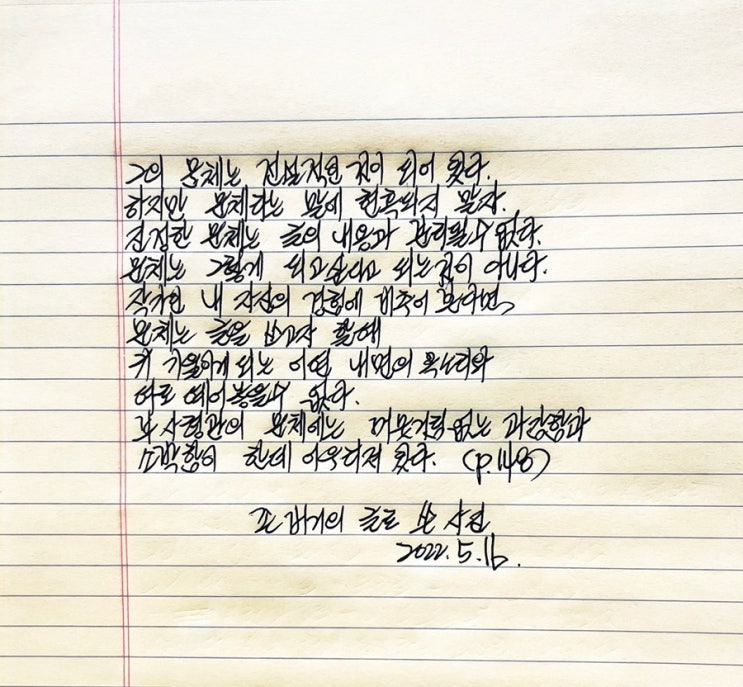 그의 문체는 전설적인 것이 되어 왔다.
하지만 문체라는 말에 현혹되지 말자.
진정한 문체는 글의 내용과 분리될 수 없다.
문체는 그렇게 되고 싶다고 되는 것이 아니다.
작가인 내 자신의 경험에 비추어 본다면,
문체는 글을 쓰고자 할 때
귀 기울이게 되는 어떤 내면의 목소리와
따로 떼어놓을 수 없다.
부사령관의 문체에는 머뭇거림 없는 과감함과
소박함이 한데 어우러져 왔다. (p.148)
존 버거의 글로 쓴 사진
2022. 5. 16.